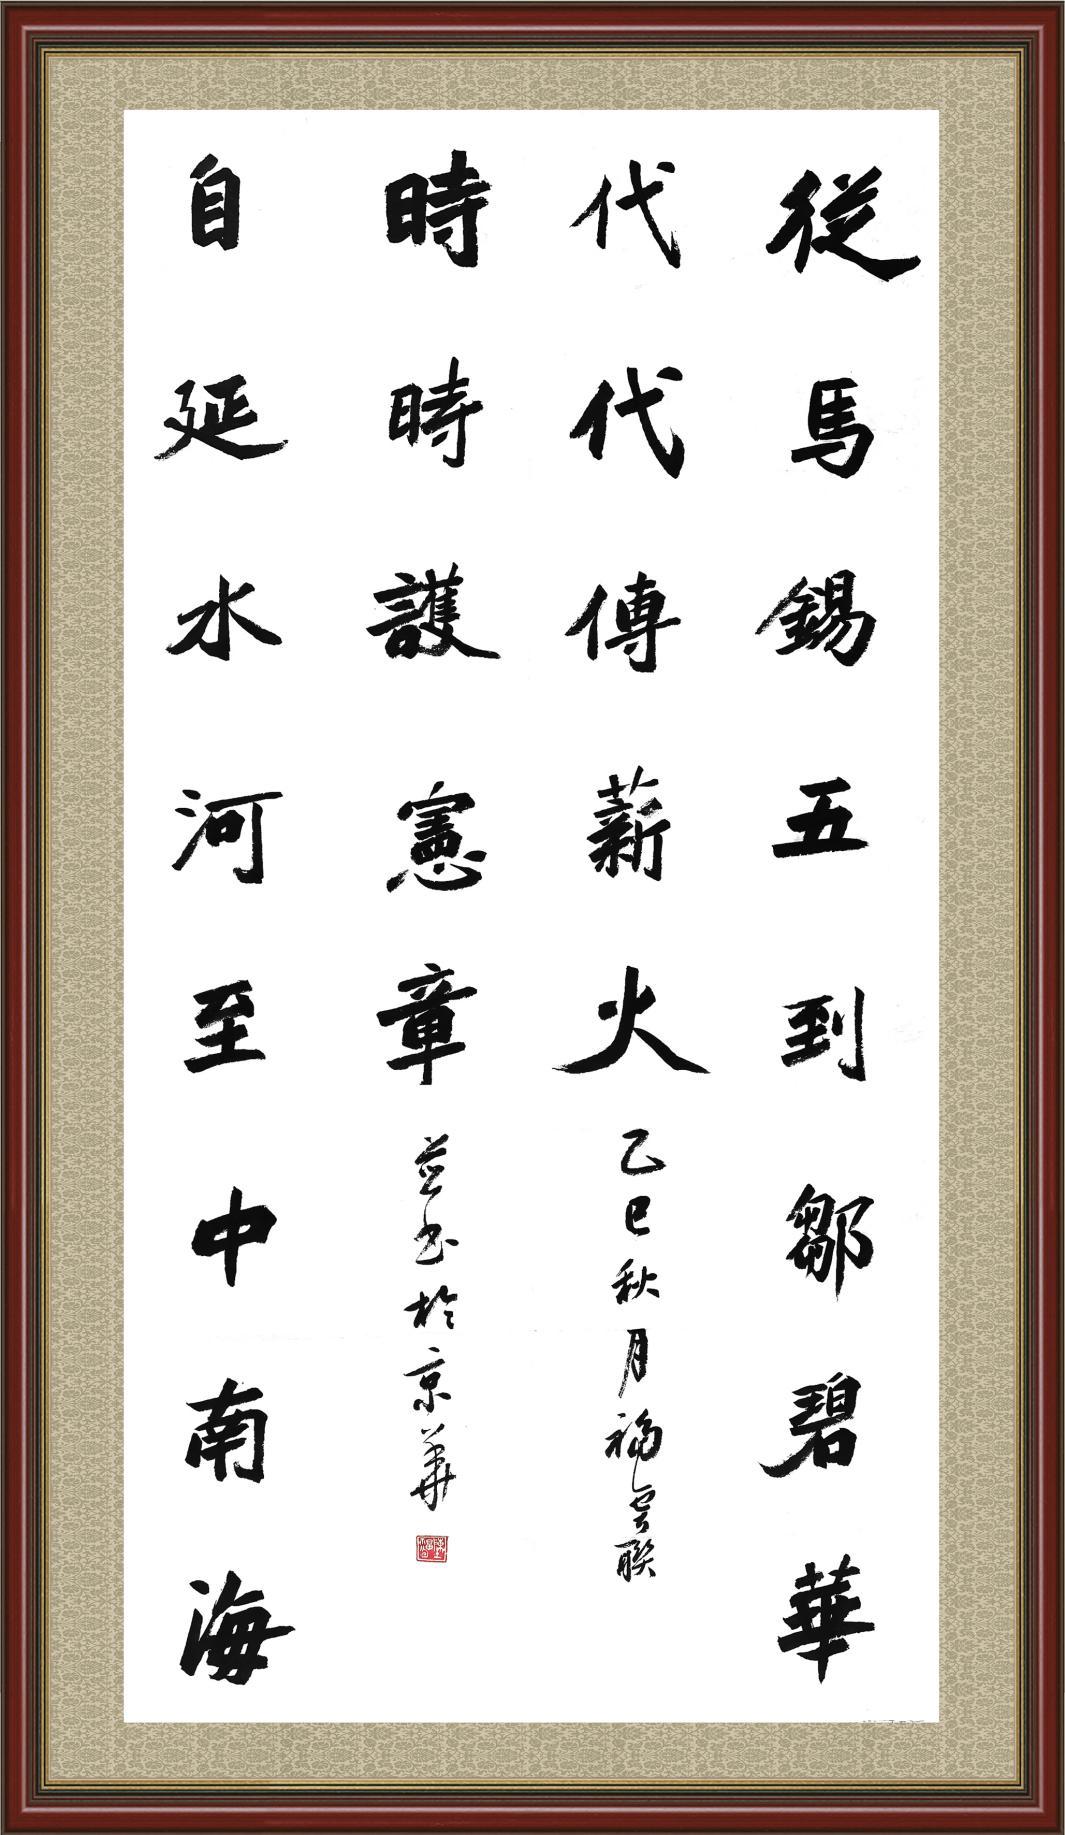 從馬錫五到鄒碧華
代代傳薪火
乙巳秋月福雲聯
自延水河至中南海
時時護憲章
並書於京華